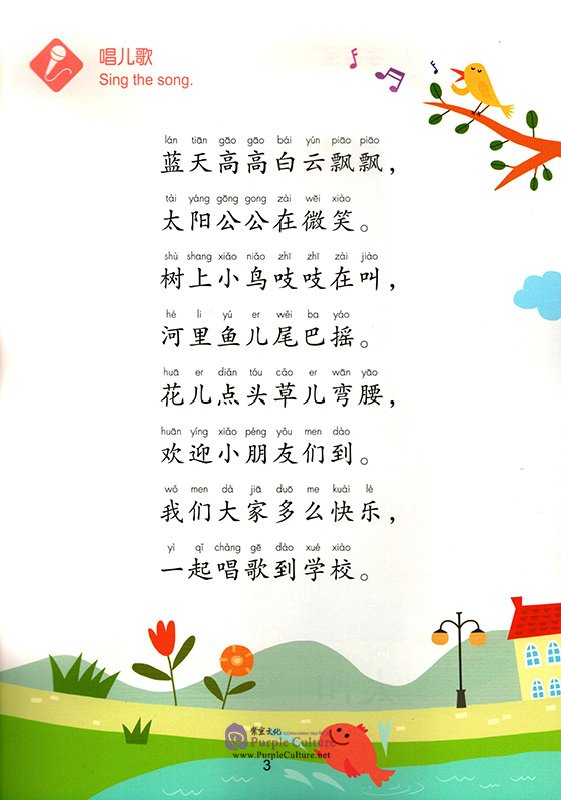 唱儿歌
Sing the song.
lán tiān gāo gāo bái yún piāo piāo
蓝天高高白云飘飘，
tài yáng gōng gong zài wēi xiào
太阳公公在微笑。
shù shang xiǎo niǎo zhī zhī zài jiào
树上小鸟吱吱在叫，
hé li yú er wěi ba yáo
河里鱼儿尾巴摇。
huā er diǎn tóu cǎo er wān yāo
花儿点头草儿弯腰，
huān yíng xiǎo péng yǒu men dào
欢迎小朋友们到。
wǒ men dà jiā duō me kuài lè
我们大家多么快乐，
yì qǐ chàng gē dào xué xiào
一起唱歌到学校。
紫宣文化
Purple Culture
www.PurpleCulture.net
3